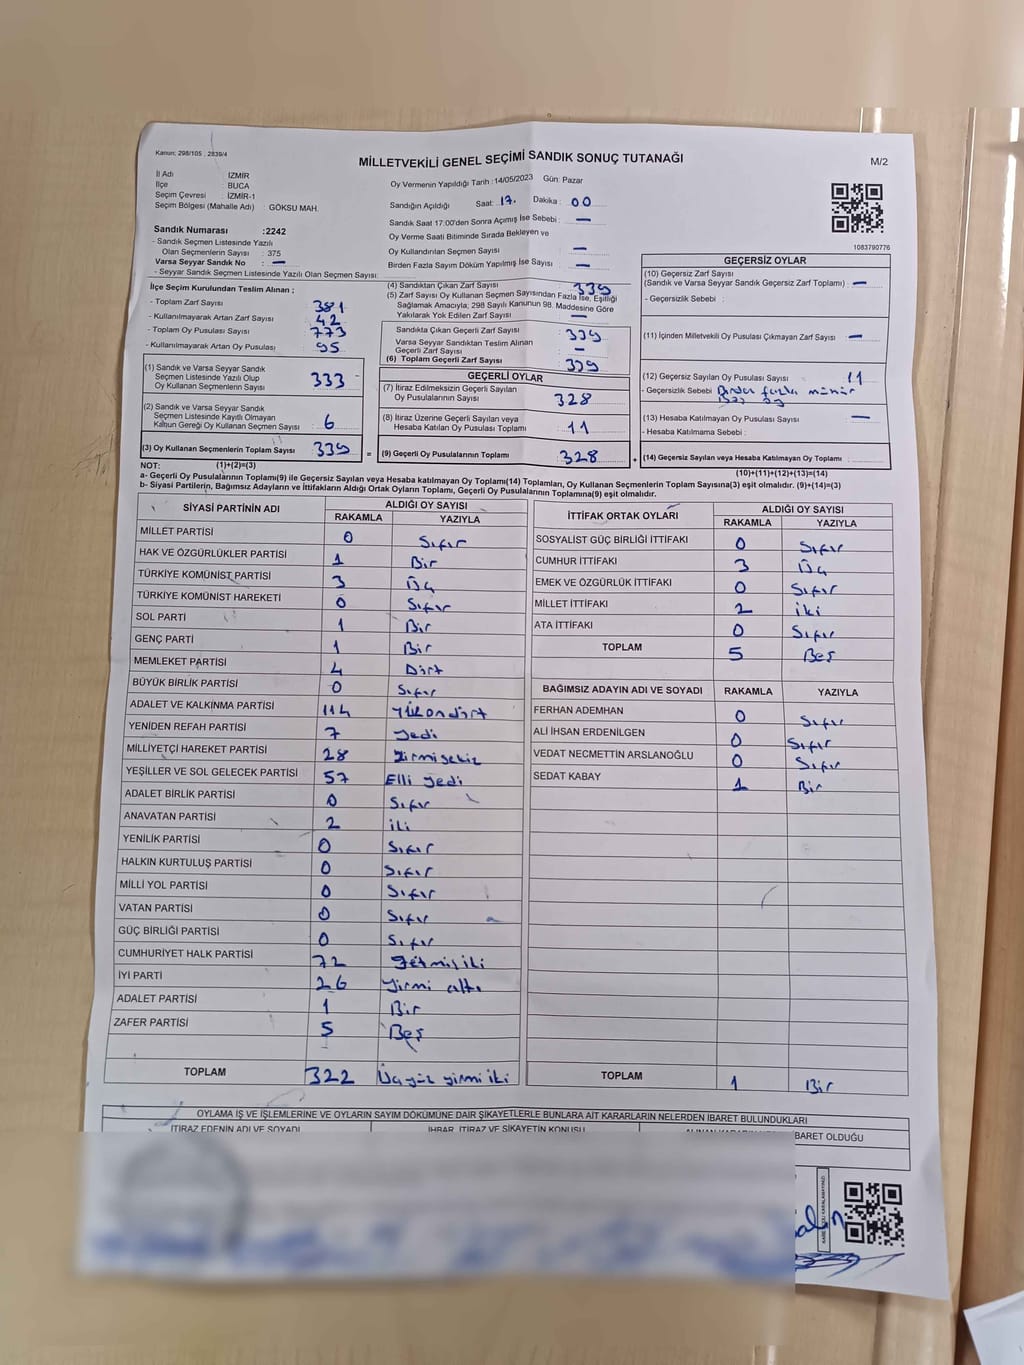 Kanun: 298/105 , 2839/4
MİLLETVEKİLİ GENEL SEÇİMİ SANDIK SONUÇ TUTANAĞI
M/2
İl Adı İZMİR
İlçe BUCA
Seçim Çevresi İZMİR-1
Seçim Bölgesi (Mahalle Adı) : GÖKSU MAH.
Sandık Numarası :2242
- Sandık Seçmen Listesinde Yazılı
Olan Seçmenlerin Sayısı : 375
Varsa Seyyar Sandık No : —
- Seyyar Sandık Seçmen Listesinde Yazılı Olan Seçmen Sayısı:
Oy Vermenin Yapıldığı Tarih : 14/05/2023 Gün: Pazar
Sandığın Açıldığı Saat: 17. Dakika : 00
Sandık Saat 17:00'den Sonra Açmış İse Sebebi : —
Oy Verme Saati Bitiminde Sırada Bekleyen ve
Oy Kullandırılan Seçmen Sayısı : —
Birden Fazla Sayım Döküm Yapılmış İse Sayısı : —
1083790776
İlçe Seçim Kurulundan Teslim Alınan ;
- Toplam Zarf Sayısı 381
- Kullanılmayarak Artan Zarf Sayısı 42
- Toplam Oy Pusulası Sayısı 773
- Kullanılmayarak Artan Oy Pusulası 95
(1) Sandık ve Varsa Seyyar Sandık
Seçmen Listesinde Yazılı Olup
Oy Kullanan Seçmenlerin Sayısı 333
(2) Sandık ve Varsa Seyyar Sandık
Seçmen Listesinde Kayıtlı Olmayan
Kanun Gereği Oy Kullanan Seçmen Sayısı : 6
(3) Oy Kullanan Seçmenlerin Toplam Sayısı : 339
(4) Sandıktan Çıkan Zarf Sayısı 339
(5) Zarf Sayısı Oy Kullanan Seçmen Sayısından Fazla İse, Eşitliği
Sağlamak Amacıyla, 298 Sayılı Kanunun 98. Maddesine Göre
Yakılarak Yok Edilen Zarf Sayısı : —
Sandıkta Çıkan Geçerli Zarf Sayısı 339
Varsa Seyyar Sandıktan Teslim Alınan
Geçerli Zarf Sayısı —
(6) Toplam Geçerli Zarf Sayısı 339
GEÇERLİ OYLAR
(7) İtiraz Edilmeksizin Geçerli Sayılan
Oy Pusulalarının Sayısı 328
(8) İtiraz Üzerine Geçerli Sayılan veya
Hesaba Katılan Oy Pusulası Toplamı 11
= (9) Geçerli Oy Pusulalarının Toplamı 328
GEÇERSİZ OYLAR
(10) Geçersiz Zarf Sayısı
(Sandık ve Varsa Seyyar Sandık Geçersiz Zarf Toplamı) : —
- Geçersizlik Sebebi :
(11) İçinden Milletvekili Oy Pusulası Çıkmayan Zarf Sayısı —
(12) Geçersiz Sayılan Oy Pusulası Sayısı : 11
- Geçersizlik Sebebi fazla mühür
(13) Hesaba Katılmayan Oy Pusulası Sayısı : —
- Hesaba Katılmama Sebebi :
+ (14) Geçersiz Sayılan veya Hesaba Katılmayan Oy Toplamı :
NOT: (1)+(2)=(3) (10)+(11)+(12)+(13)=(14)
a- Geçerli Oy Pusulalarının Toplamı(9) ile Geçersiz Sayılan veya Hesaba katılmayan Oy Toplamı(14) Toplamları, Oy Kullanan Seçmenlerin Toplam Sayısına(3) eşit olmalıdır. (9)+(14)=(3)
b- Siyasi Partilerin, Bağımsız Adayların ve İttifakların Aldığı Ortak Oyların Toplamı, Geçerli Oy Pusulalarının Toplamına(9) eşit olmalıdır.
SİYASİ PARTİNİN ADI ALDIĞI OY SAYISI
RAKAMLA YAZIYLA
MİLLET PARTİSİ 0 Sıfır
HAK VE ÖZGÜRLÜKLER PARTİSİ 1 Bir
TÜRKİYE KOMÜNİST PARTİSİ 3 Üç
TÜRKİYE KOMÜNİST HAREKETİ 0 Sıfır
SOL PARTİ 1 Bir
GENÇ PARTİ 1 Bir
MEMLEKET PARTİSİ 4 Dört
BÜYÜK BİRLİK PARTİSİ 0 Sıfır
ADALET VE KALKINMA PARTİSİ 114 Yüzondört
YENİDEN REFAH PARTİSİ 7 Yedi
MİLLİYETÇİ HAREKET PARTİSİ 28 Yirmisekiz
YEŞİLLER VE SOL GELECEK PARTİSİ 57 Elli yedi
ADALET BİRLİK PARTİSİ 0 Sıfır
ANAVATAN PARTİSİ 2 iki
YENİLİK PARTİSİ 0 Sıfır
HALKIN KURTULUŞ PARTİSİ 0 Sıfır
MİLLİ YOL PARTİSİ 0 Sıfır
VATAN PARTİSİ 0 Sıfır
GÜÇ BİRLİĞİ PARTİSİ 0 Sıfır
CUMHURİYET HALK PARTİSİ 72 yetmişiki
İYİ PARTİ 26 Yirmi altı
ADALET PARTİSİ 1 Bir
ZAFER PARTİSİ 5 Beş
TOPLAM 322 Üçyüz yirmi iki
İTTİFAK ORTAK OYLARI ALDIĞI OY SAYISI
RAKAMLA YAZIYLA
SOSYALIST GÜÇ BİRLİĞİ İTTİFAKI 0 Sıfır
CUMHUR İTTİFAKI 3 Üç
EMEK VE ÖZGÜRLÜK İTTİFAKI 0 Sıfır
MİLLET İTTİFAKI 2 iki
ATA İTTİFAKI 0 Sıfır
TOPLAM 5 Beş
BAĞIMSIZ ADAYIN ADI VE SOYADI RAKAMLA YAZIYLA
FERHAN ADEMHAN 0 Sıfır
ALİ İHSAN ERDENİLGEN 0 Sıfır
VEDAT NECMETTİN ARSLANOĞLU 0 Sıfır
SEDAT KABAY 1 Bir
TOPLAM 1 Bir
OYLAMA İŞ VE İŞLEMLERİNE VE OYLARIN SAYIM DÖKÜMÜNE DAİR ŞİKAYETLERLE BUNLARA AİT KARARLARIN NELERDEN İBARET BULUNDUKLARI
İTİRAZ EDENİN ADI VE SOYADI İHBAR, İTİRAZ VE ŞİKAYETİN KONUSU BARET OLDUĞU